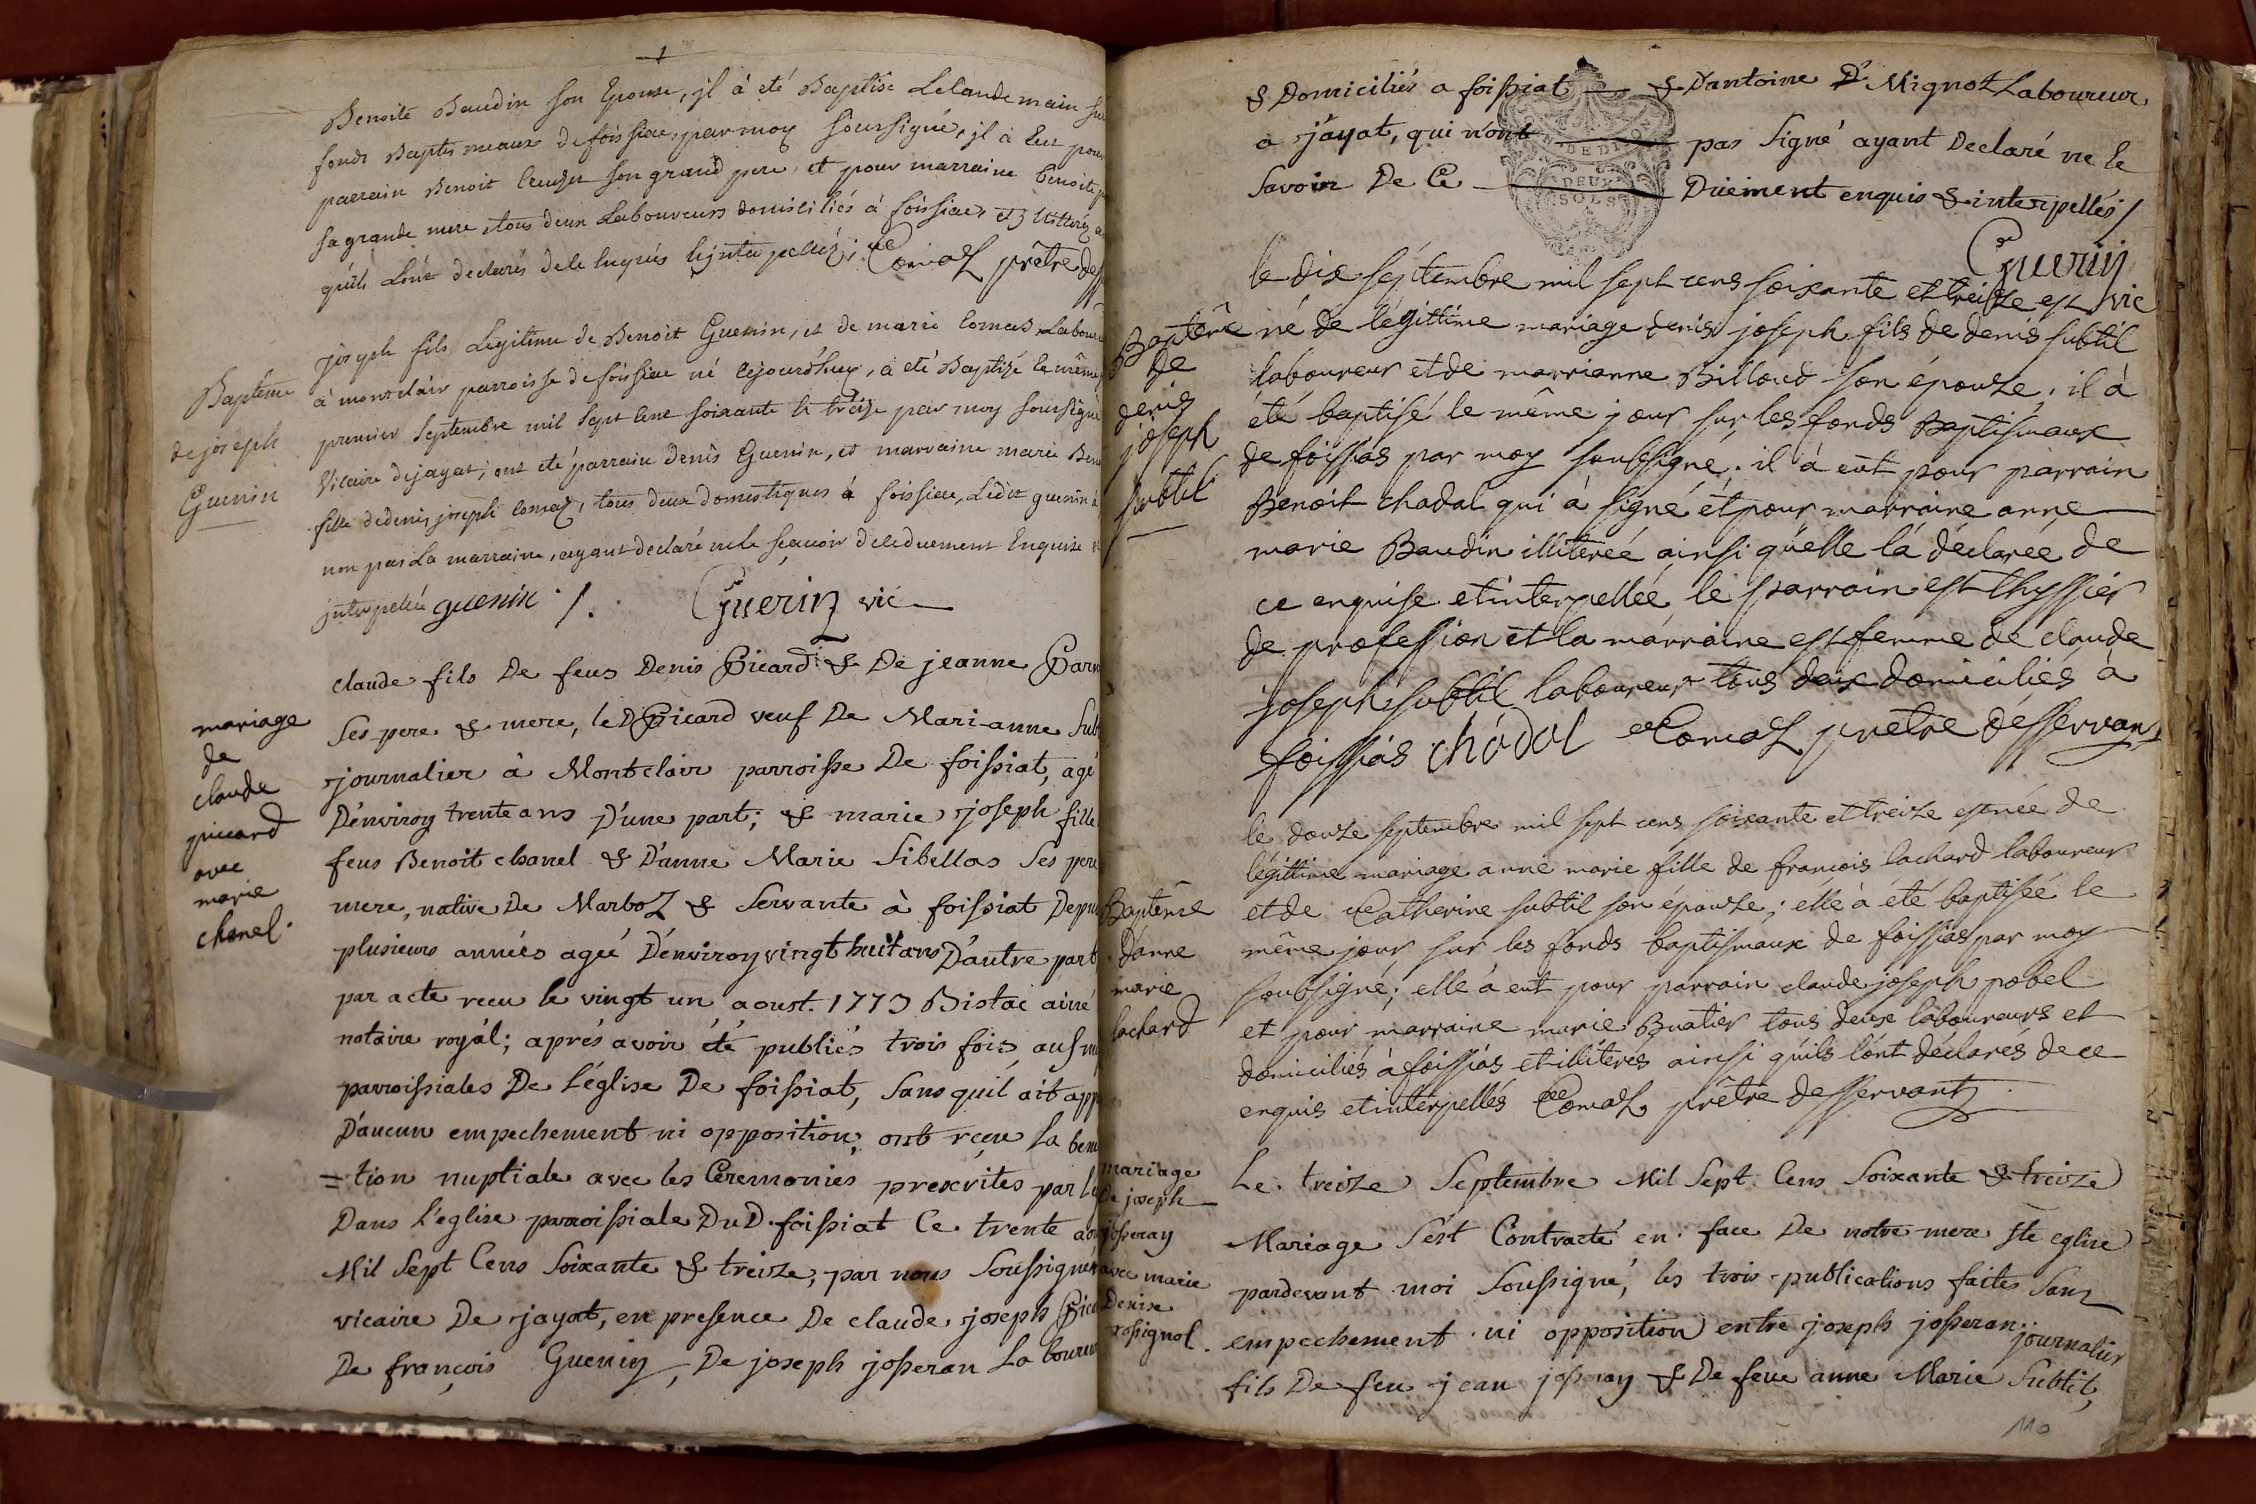 Benoite Baudin son Epouse, jl à eté Baptisé Le landemain sur
fonds Baptismaux de foissiac, par moy soussigné, jl à Eut pour
parrain Benoit son grand pere, et pour marraine Benoite
sa grande mere tous deux Laboureurs domiciliés à foissiac, et Illitérés
qu'ils L'ont declarés de le enquis & interpellés; Comas prêtre dess
Baptême
de joseph
Guenin
joseph fils Légitime de Benoit Guenin, et de marie Comas Labour
à montclair parroisse de foissiac né cejourd'huy, à eté Baptizé le même
premier Septembre mil Sept Cent Soixante & treize par moy soussigné
Vicaire de jayat; ont eté parrain denis Guenin, et marraine marie
fille de denis joseph Comas, tous deux domestiques à foissiac, Ledit guenin à
non pas La marraine, ayant declaré ne le sçavoir de ce duement Enquise
jnterpellée guenin ./. Guerin vic
mariage
de
claude
piccard
avec
marie
chanel.
claude fils De feus Denis Picard & De jeanne
Ses pere & mere, led Picard veuf De Mari-anne Sub
journalier à Montclair parroisse De foissiat, agé
D'environ trente ans D'une part; & marie joseph fille
feus Benoit chanel & D'anne Marie Sibellas Ses pere
mere, native De Marboz & Servante à foissiat Depui
plusieurs années agée D'environ vingt huit ans D'autre part
par acte reçu le vingt un aoust 1773 Bistac ainé
notaire royál; aprés avoir été publiés trois fois aus
parroissiales De L'église De foissiat, Sans qu'il ait app
D'aucun empechement ni opposition, ont reçu La bene
=tion nuptiale avec les Ceremonies prescrites par
Dans l'eglise parroissiale Dud. foissiat Ce trente aou
Mil Sept Cens Soixante & treize, par nous Soussigner
vicaire De jayat, en presence De claude joseph
De françois Guenin, De joseph josseran Labour
& Domiciliés a foissiat & D'antoine D. Mignot Laboureur
a jayat, qui n'ont pas Signé ayant Declaré ne le
Savoir De Ce Duement enquis & interpellés /
DEUX
SOLS
Guerin
vic
Baptême
de
denis
joseph
subtil
le dix séptembre mil sept cens soixante et treize est
né de légittime mariage denis joseph fils de denis subtil
laboureur et de marrianne Billoud son épouze; il à
été baptisé le même jour sur les fonds Baptismaux
de foissias par moy soubsigné; il à eut pour parrain
Benoit chadal qui à signé et pour marraine anne
marie Baudin illiterée ainsi qu'elle l'a déclarée de
ce enquise et interpellée le parrain est thyssier
de profession et la marraine est femme de claude
joseph subtil laboureur tous deux domiciliés à
foissias chádal Comas prêtre désservant
Baptême
d'anne
marie
lachard
le douze septembre mil sept cens soixante et treize est née de
légittime mariage anne marie fille de françois lachard laboureur
et de Catherine subtil son épouze; elle à été baptisée le
même jour sur les fonds baptismaux de foissias par moy
soubsigné; elle à eut pour parrain claude joseph pobel
et pour marraine marie Buatier tous deux laboureurs et
domiciliés à foissias et illiterés ainsi qu'ils l'ont déclarés de ce
enquis et interpellés Comas prêtre desservant
mariage
De joseph
josseran
avec marie
Denise
rossignol.
Le treize Septembre Mil Sept Cens Soixante & treize
Mariage S'ést Contracté en face De notre mere Ste eglise
pardevant moi Soussigné, les trois publications faites Sans
empechement ni opposition entre joseph josseran journalier
fils De feu jean josseran & De feue anne Marie Subtil,
110